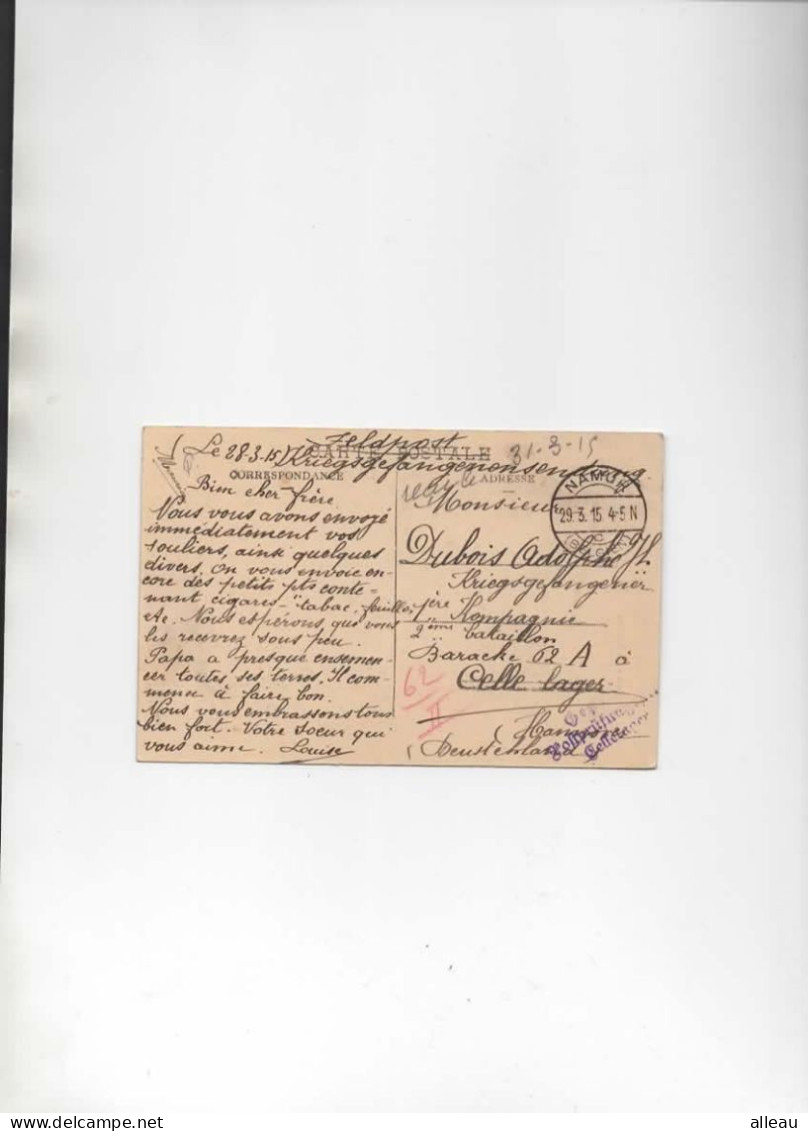 (Le 28.3.15)
Feldpost
CARTE POSTALE
31-3-15
Kriegsgefangenensendung
CORRESPONDANCE
ADRESSE
Bien cher frère
Nous vous avons envoyé
immédiatement vos
souliers, ainsi quelques
divers. On vous envoie en-
core des petits pts conte-
nant cigares - tabac, feuilles,
etc. Nous espérons que vous
les recevrez sous peu.
Papa a presque ensemen-
cer toutes ses terres. Il com-
mence à faire bon.
Nous vous embrassons tous
bien fort. Votre soeur qui
vous aime. Louise
NAMUR
29.3.15 4-5 N
Monsieur
Dubois Adolphe
Kriegsgefangener
1ère Kompagnie
2ème bataillon
Baracke 62 A à
Celle lager
62
(Hannover
Deutschland
Cellelager
delcampe.net
alleau